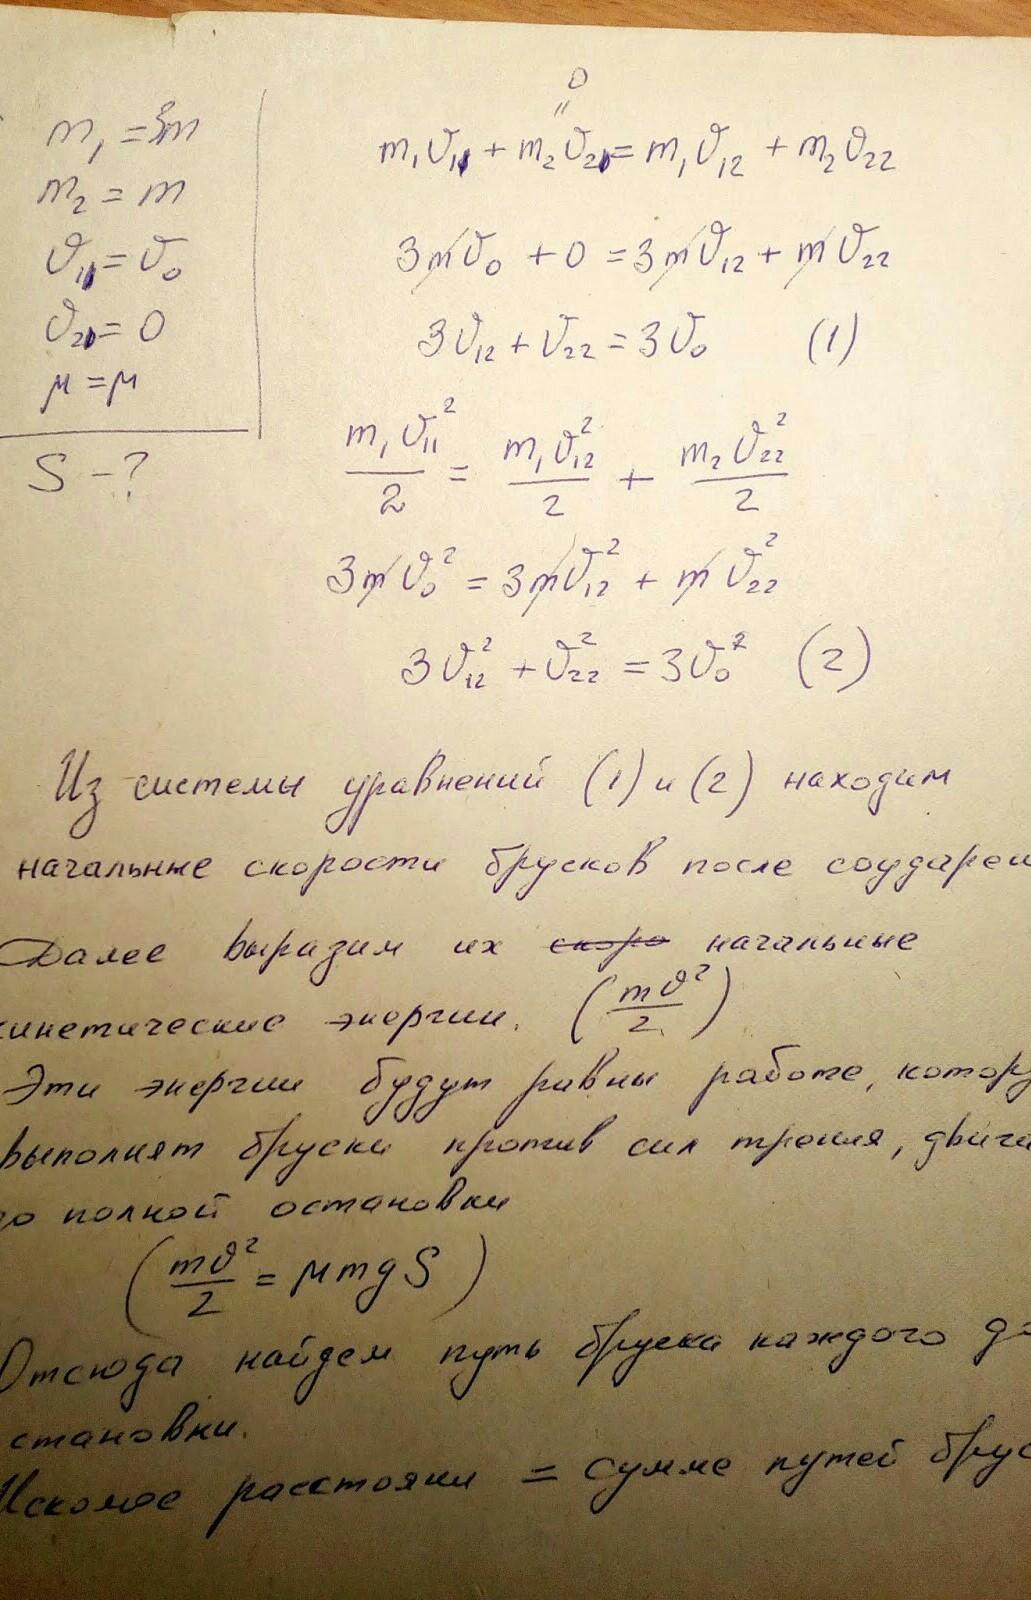 m₁ = 3m
m₂ = m
υ₁₁ = υ₀
υ₂₁ = 0
μ = μ
S – ?
0
"
m₁υ₁₁ + m₂υ₂₁ = m₁υ₁₂ + m₂υ₂₂
3mυ₀ + 0 = 3mυ₁₂ + mυ₂₂
3υ₁₂ + υ₂₂ = 3υ₀ (1)
m₁υ₁₁²/2 = m₁υ₁₂²/2 + m₂υ₂₂²/2
3mυ₀² = 3mυ₁₂² + mυ₂₂²
3υ₁₂² + υ₂₂² = 3υ₀² (2)
Из системы уравнений (1) и (2) находим
начальные скорости брусков после соударен
Далее выразим их скоро начальные
кинетические энергии. (mυ²/2)
Эти энергии будут равны работе, котору
выполнят бруски против сил трения, движ
до полной остановки
(mυ²/2 = μmgS)
Отсюда найдем путь бруска каждого до
становки.
Искомое расстояни = сумме путей брус